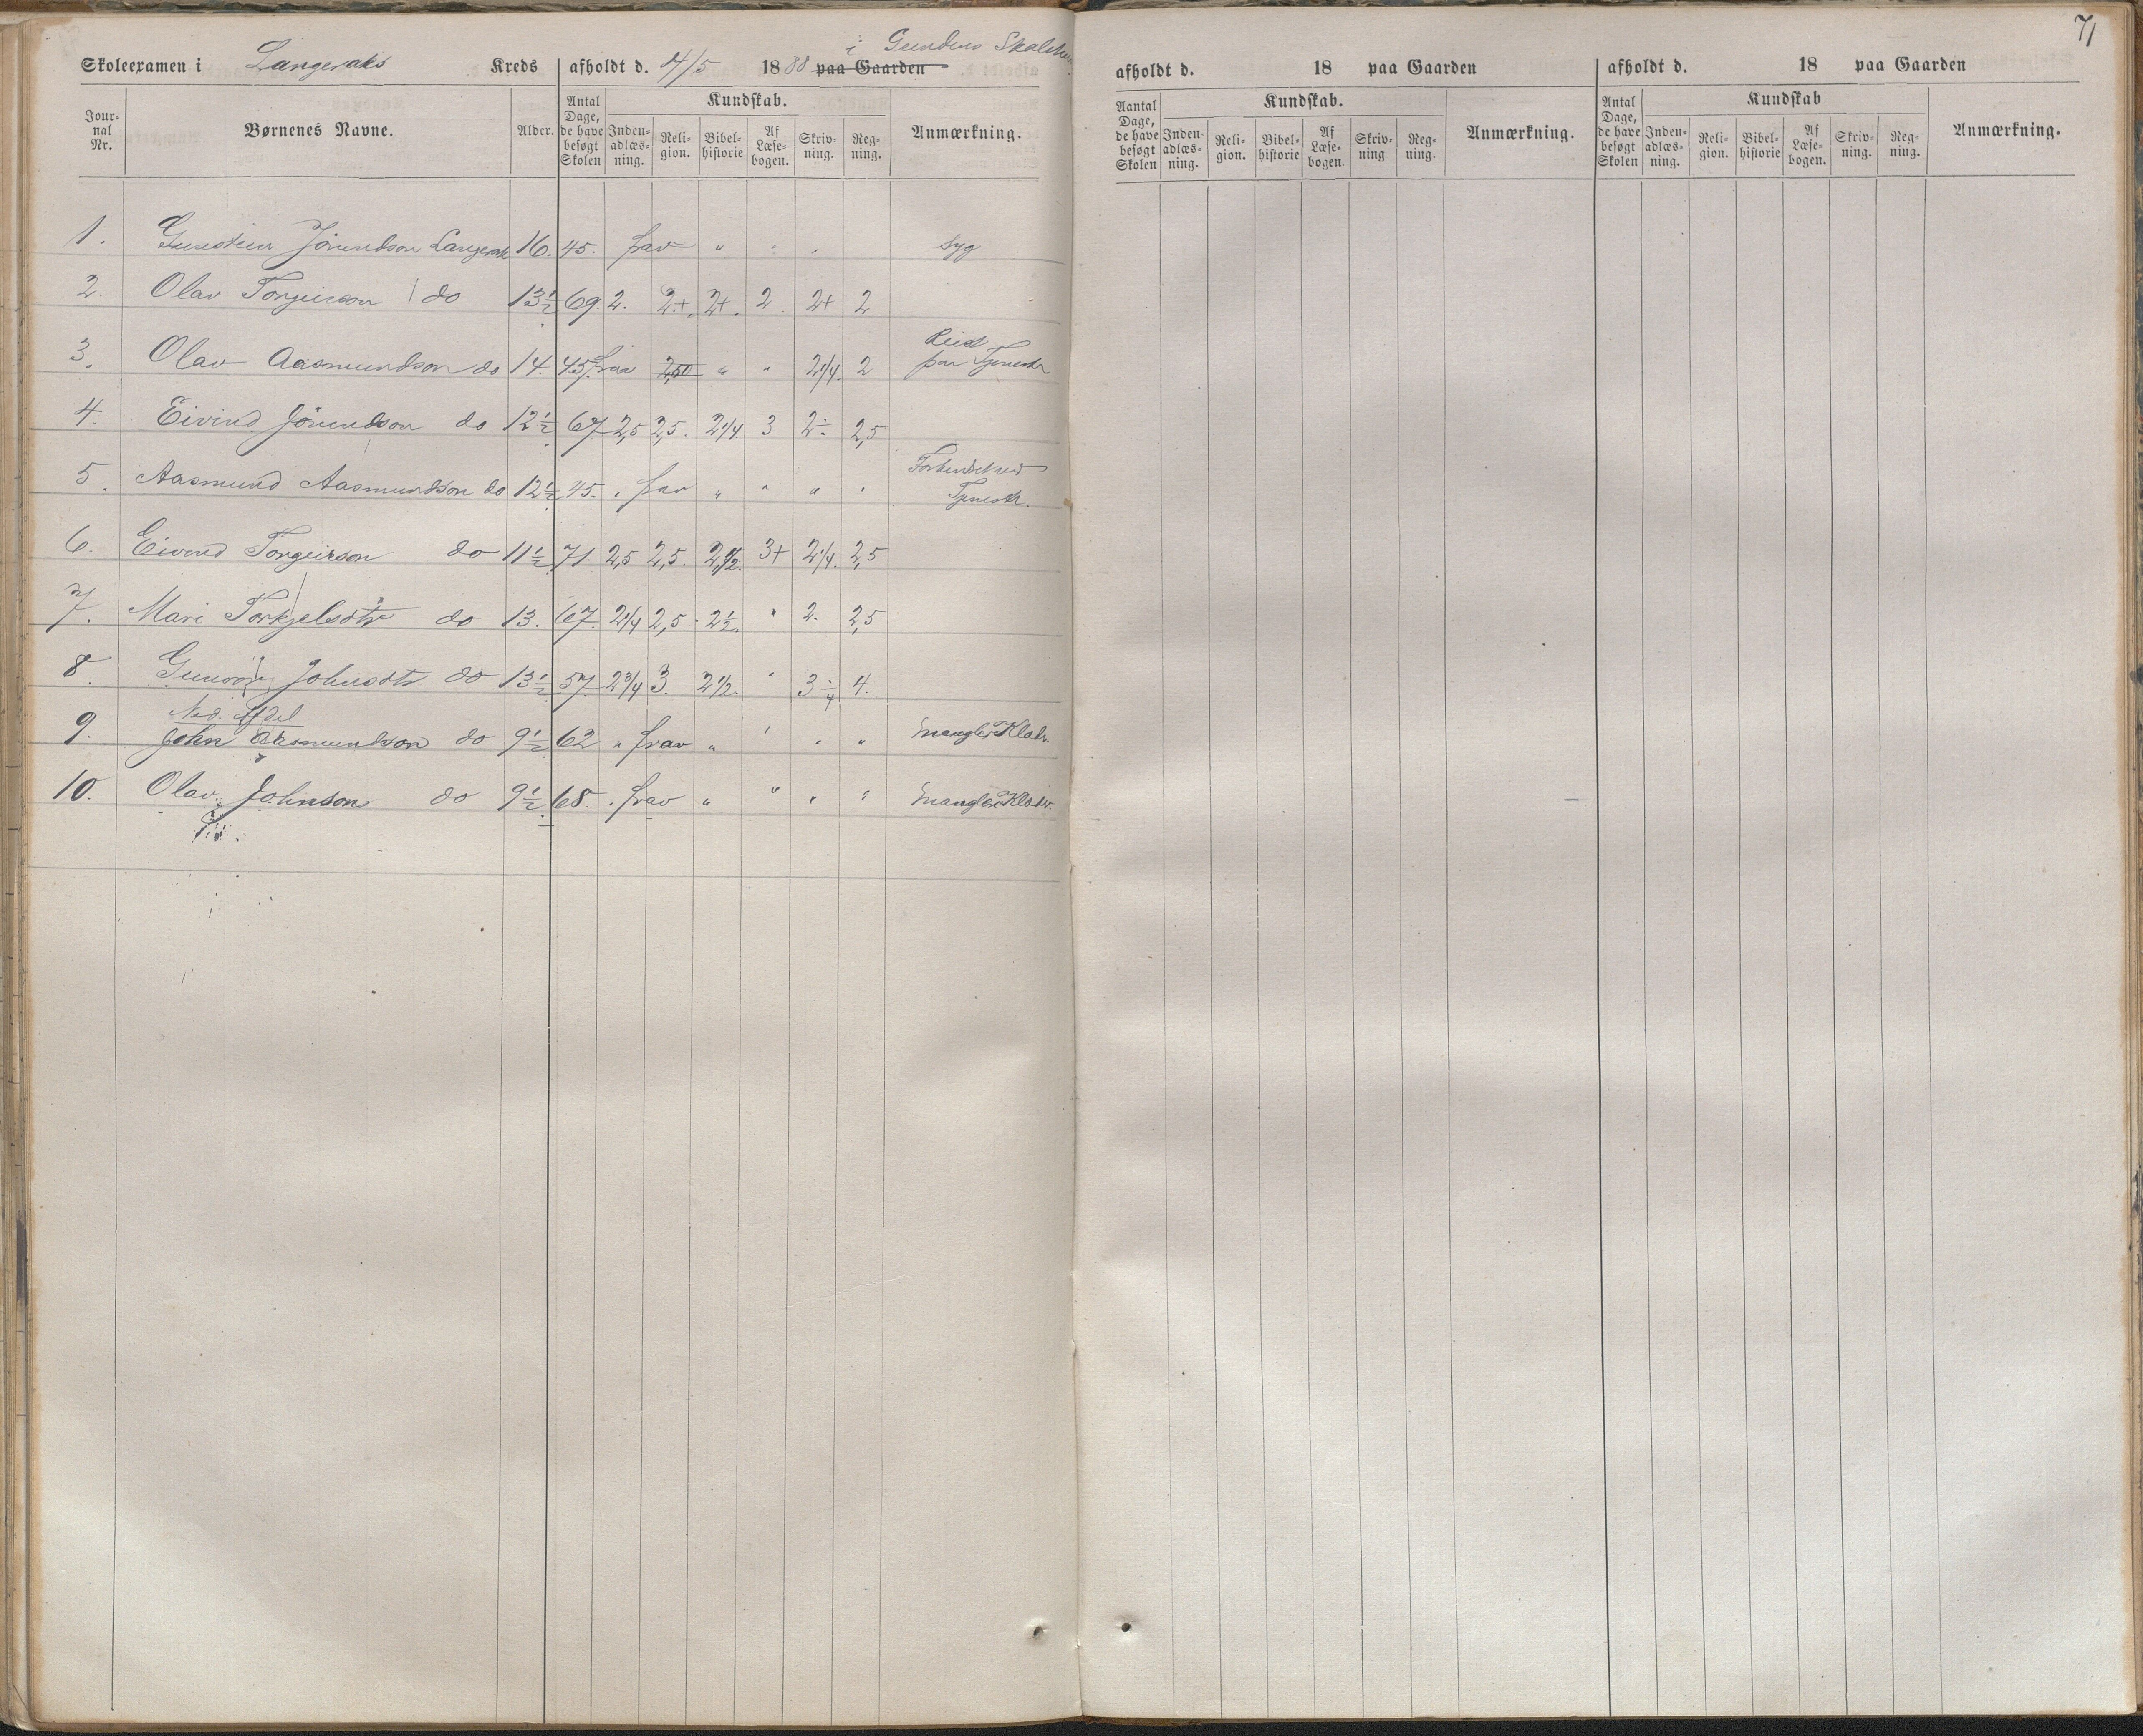 71
i Grundens Skolehus
Skoleexamen i Langeraks Kreds afholdt d. 4/5 1888 paa Gaarden
Jour-nal Nr. Børnenes Navne. Alder. Antal Dage, de have besøgt Skolen Kundskab. Inden-adlæs-ning. Reli-gion. Bibel-historie Af Læse-bogen. Skriv-ning. Reg-ning. Anmærkning.
1. Gunstein Jörundson Langerak 16. 45. frav " " " syg
2. Olav Torgeirson do 13½ 69. 2. 2+. 2+. 2. 2+ 2
3. Olav Aasmundson do 14. 45. frav " " 2 1/4. 2 Reist paa Tjeneste
4. Eivind Jörundson do 12½ 67. 2,5 2,5. 2 1/4. 3 2÷ 2,5
5. Aasmund Aasmundson do 12½ 45. " frav " " " " Forhindret ved Tjeneste.
6. Eivind Torgeirson do 11½ 71. 2,5 2,5. 2 1/2. 3+ 2 1/4. 2,5
7. Mari Torkjelsdtr do 13. 67. 2 1/4 2,5 - 2½. " 2. 2,5
8. Gunvor Johnsdtr do 13½ 57. 2 3/4 3. 2 1/2. " 3 4.
Ned. Afdel
9. John Aasmundson do 9½ 62 " frav " " " " mangler Klæder.
10. Olav Johnson do 9½ 68. " frav " " " " mangler Klæder.
afholdt d. 18 paa Gaarden
Aantal Dage, de have besøgt Skolen Kundskab. Inden-adlæs-ning. Reli-gion. Bibel-historie Af Læse-bogen. Skriv-ning Reg-ning. Anmærkning.
afholdt d. 18 paa Gaarden
Antal Dage, de have besøgt Skolen Kundskab Inden-adlæs-ning. Reli-gion. Bibel-historie Af Læse-bogen. Skriv-ning. Reg-ning. Anmærkning.